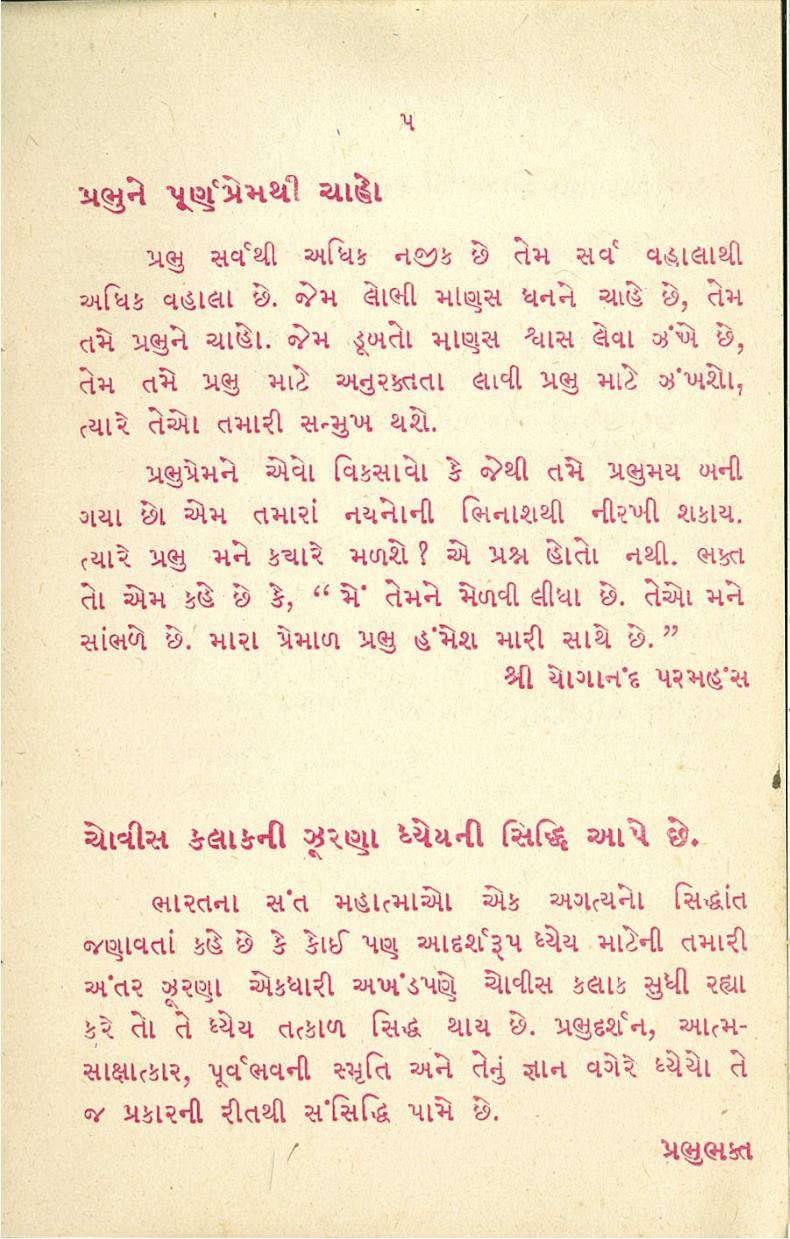 ૫
પ્રભુને પૂર્ણપ્રેમથી ચાહો
પ્રભુ સર્વથી અધિક નજીક છે તેમ સર્વ વહાલાથી
અધિક વહાલા છે. જેમ લોભી માણસ ધનને ચાહે છે, તેમ
તમે પ્રભુને ચાહો. જેમ ડૂબતો માણસ શ્વાસ લેવા ઝંખે છે,
તેમ તમે પ્રભુ માટે અનુરક્તતા લાવી પ્રભુ માટે ઝંખશો,
ત્યારે તેઓ તમારી સન્મુખ થશે.
પ્રભુપ્રેમને એવો વિકસાવો કે જેથી તમે પ્રભુમય બની
ગયા છો એમ તમારાં નયનોની ભિનાશથી નીરખી શકાય.
ત્યારે પ્રભુ મને કયારે મળશે? એ પ્રશ્ન હોતો નથી. ભક્ત
તો એમ કહે છે કે, “ મેં તેમને મેળવી લીધા છે. તેઓ મને
સાંભળે છે. મારા પ્રેમાળ પ્રભુ હંમેશ મારી સાથે છે.”
શ્રી યોગાનંદ પરમહંસ
ચોવીસ કલાકની ઝૂરણા ધ્યેયની સિદ્ધિ આપે છે.
ભારતના સંત મહાત્માઓ એક અગત્યનો સિદ્ધાંત
જણાવતાં કહે છે કે કોઈ પણ આદર્શરૂપ ધ્યેય માટેની તમારી
અંતર ઝૂરણા એકધારી અખંડપણે ચોવીસ કલાક સુધી રહ્યા
કરે તો તે ધ્યેય તત્કાળ સિદ્ધ થાય છે. પ્રભુદર્શન, આત્મ-
સાક્ષાત્કાર, પૂર્વભવની સ્મૃતિ અને તેનું જ્ઞાન વગેરે ધ્યેયો તે
જ પ્રકારની રીતથી સંસિદ્ધિ પામે છે.
પ્રભુભક્ત